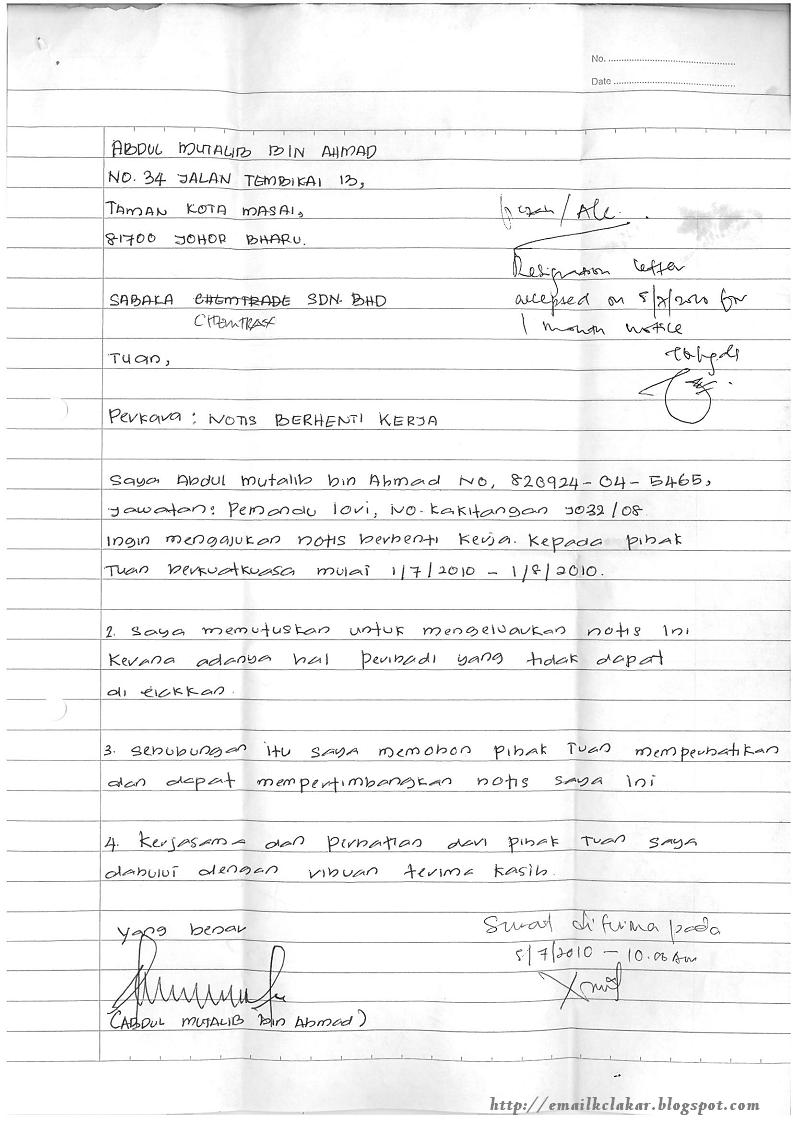 No. ..........
Date ..........
ABDUL MUTALIB BIN AHMAD
NO. 34 JALAN TEMBIKAI 13,
TAMAN KOTA MASAI,
81700 JOHOR BHARU.
/ Alc.
Resignation letter
accepted on 5/7/2010 for
1 month notice
SABAKA CHEMTRADE SDN. BHD
CHEMTRAX
Tuan,
Perkara : NOTIS BERHENTI KERJA
Saya Abdul mutalib bin Ahmad No, 820924-04-5465,
Jawatan: Pemandu lori, No. Kakitangan J032/08
Ingin mengajukan notis berhenti kerja. Kepada pihak
Tuan berkuatkuasa mulai 1/7/2010 - 1/8/2010.
2. Saya memutuskan untuk mengeluarkan notis ini
Kerana adanya hal peribadi yang tidak dapat
di elakkan.
3. Sehubungan itu saya memohon pihak Tuan memperhatikan
dan dapat mempertimbangkan notis saya ini
4. Kerjasama dan perhatian dari pihak Tuan saya
dahului dengan ribuan terima kasih.
yang benar
(ABDUL MUTALIB bin Ahmad)
Surat diterima pada
5/7/2010 - 10.00 Am
http://emailkclakar.blogspot.com